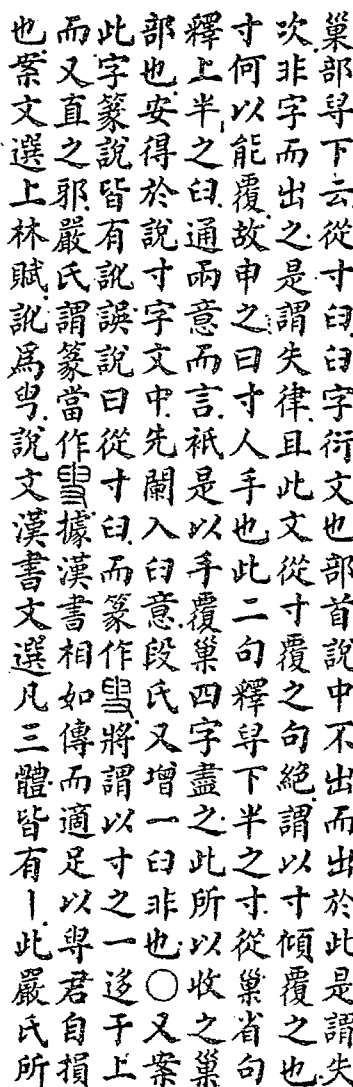 巢部㝷下云從寸臼臼字衍文也部首說中不出而出於此是謂失
次非字而出之是謂失律且此文從寸覆之句絶謂以寸傾覆之也
寸何以能覆故申之曰寸人手也此二句釋㝷下半之寸從巢省句
釋上半之臼通兩意而言衹是以手覆巢四字盡之此所以收之巢
部也安得於說寸字文中先闌入臼意段氏又增一臼非也○又案
此字篆說皆有訛誤說曰從寸臼而篆作將謂以寸之一迻于上
而又直之邪嚴氏謂篆當作據漢書相如傳而適足以㝷君自損
也案文選上林賦訛爲甹說文漢書文選凡三體皆有丨此嚴氏所